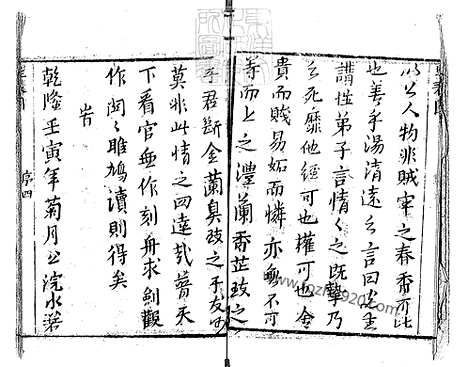 以公人物非賊宰之春香可比
也善乎湯清遠之言曰先生
講性弟子言情之既摯乃
之死靡他經可也權可也舍
貴而賤易妬而憐亦無不可
等而上之澧蘭香芷跂之
乎君斷金蘭臭跂之乎友
莫非此情之四達哉普天
下看官無作刻舟求劍觀
作関々雎鳩讀則得矣
岢
乾隆壬寅年菊月上浣水箬
序四